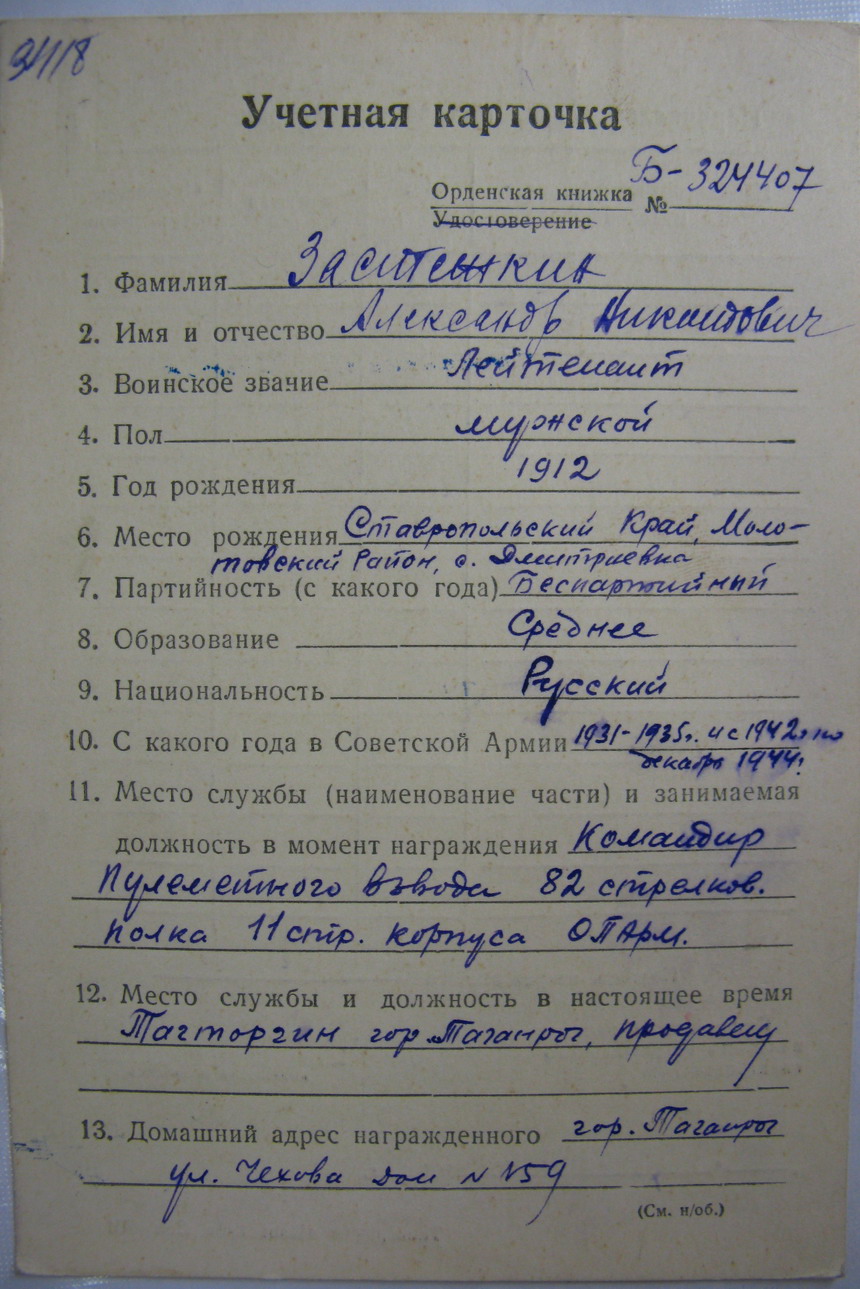 Учетная карточка
Орденская книжка № Б-324407
Удостоверение
1. Фамилия Заситежкин
2. Имя и отчество Александр Никандович
3. Воинское звание Лейтенант
4. Пол мужской
5. Год рождения 1912
6. Место рождения Ставропольский Край, Моло-
товский Район, с. Дмитриевка
7. Партийность (с какого года) Беспартийный
8. Образование Среднее
9. Национальность Русский
10. С какого года в Советской Армии 1931-1935г. и с 1942г по
декабрь 1944г.
11. Место службы (наименование части) и занимаемая
должность в момент награждения Командир
пулеметного взвода 82 стрелков.
полка 11 стр. корпуса ОПАрм.
12. Место службы и должность в настоящее время
гор. Таганрог, продавец
13. Домашний адрес награжденного гор. Таганрог
ул. Чехова дом N 159
(См. н/об.)